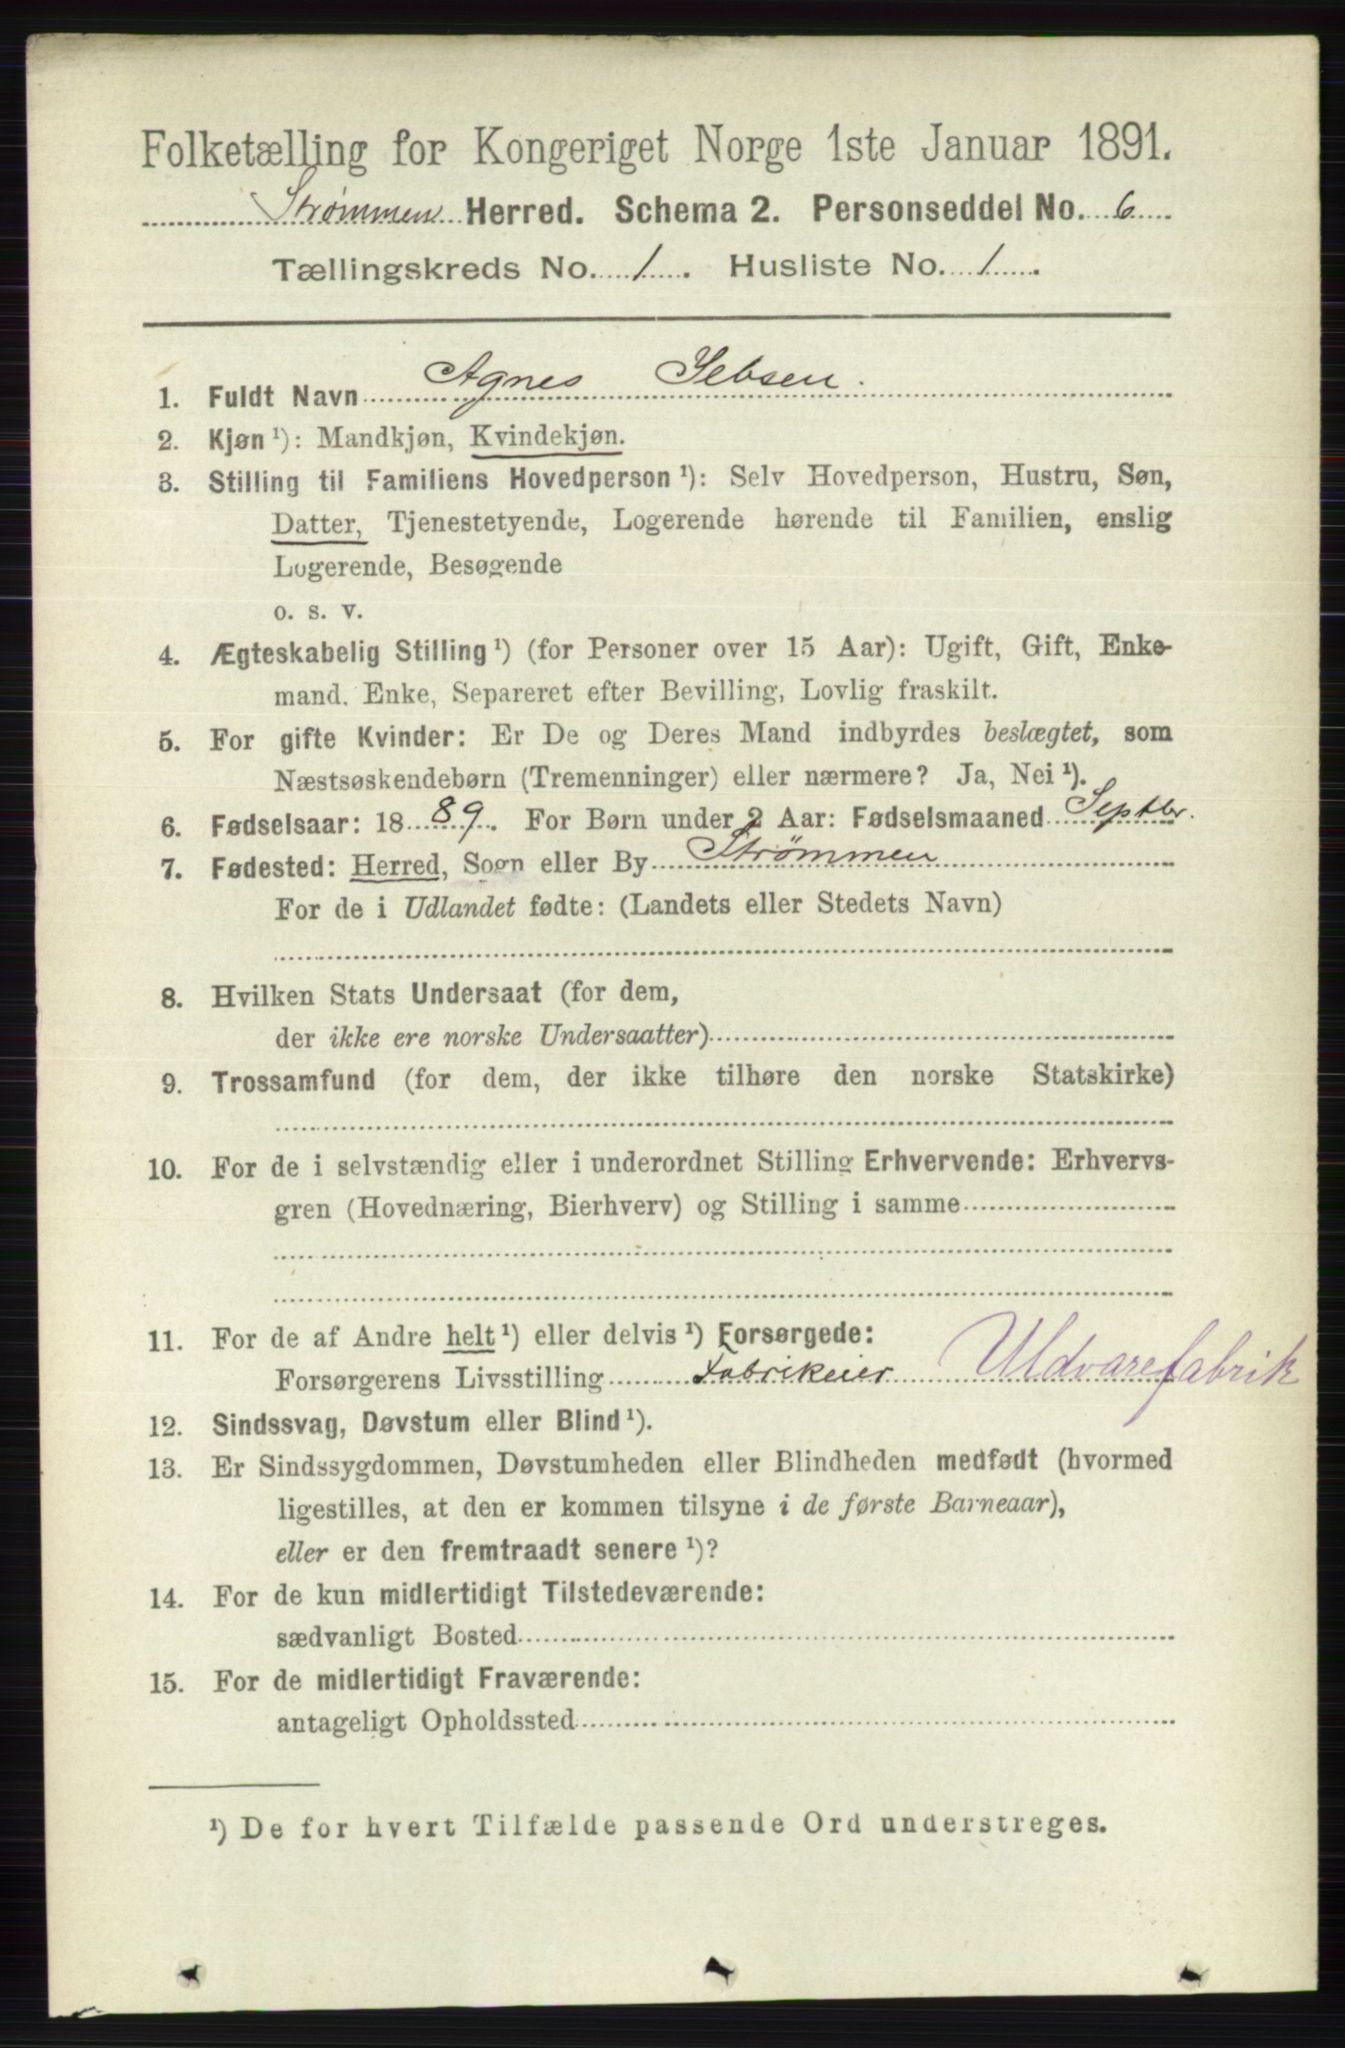 Folketælling for Kongeriget Norge 1ste Januar 1891.
Strømmen Herred. Schema 2. Personseddel No. 6
Tællingskreds No. 1. Husliste No. 1.
1. Fuldt Navn Agnes Jebsen.
2. Kjøn ¹): Mandkjøn, Kvindekjøn.
3. Stilling til Familiens Hovedperson ¹): Selv Hovedperson, Hustru, Søn,
Datter, Tjenestetyende, Logerende hørende til Familien, enslig
Logerende, Besøgende
o. s. v.
4. Ægteskabelig Stilling ¹) (for Personer over 15 Aar): Ugift, Gift, Enke-
mand, Enke, Separeret efter Bevilling, Lovlig fraskilt.
5. For gifte Kvinder: Er De og Deres Mand indbyrdes beslægtet, som
Næstsøskendebørn (Tremenninger) eller nærmere? Ja, Nei ¹).
6. Fødselsaar: 1889. For Børn under 2 Aar: Fødselsmaaned Septbr.
7. Fødested: Herred, Sogn eller By Strømmen
For de i Udlandet fødte: (Landets eller Stedets Navn)
8. Hvilken Stats Undersaat (for dem,
der ikke ere norske Undersaatter)
9. Trossamfund (for dem, der ikke tilhøre den norske Statskirke)
10. For de i selvstændig eller i underordnet Stilling Erhvervende: Erhvervs-
gren (Hovednæring, Bierhverv) og Stilling i samme
11. For de af Andre helt ¹) eller delvis ¹) Forsørgede:
Forsørgerens Livsstilling Fabrikeier Uldvarefabrik
12. Sindssvag, Døvstum eller Blind ¹).
13. Er Sindssygdommen, Døvstumheden eller Blindheden medfødt (hvormed
ligestilles, at den er kommen tilsyne i de første Barneaar),
eller er den fremtraadt senere ¹)?
14. For de kun midlertidigt Tilstedeværende:
sædvanligt Bosted
15. For de midlertidigt Fraværende:
antageligt Opholdssted
¹) De for hvert Tilfælde passende Ord understreges.